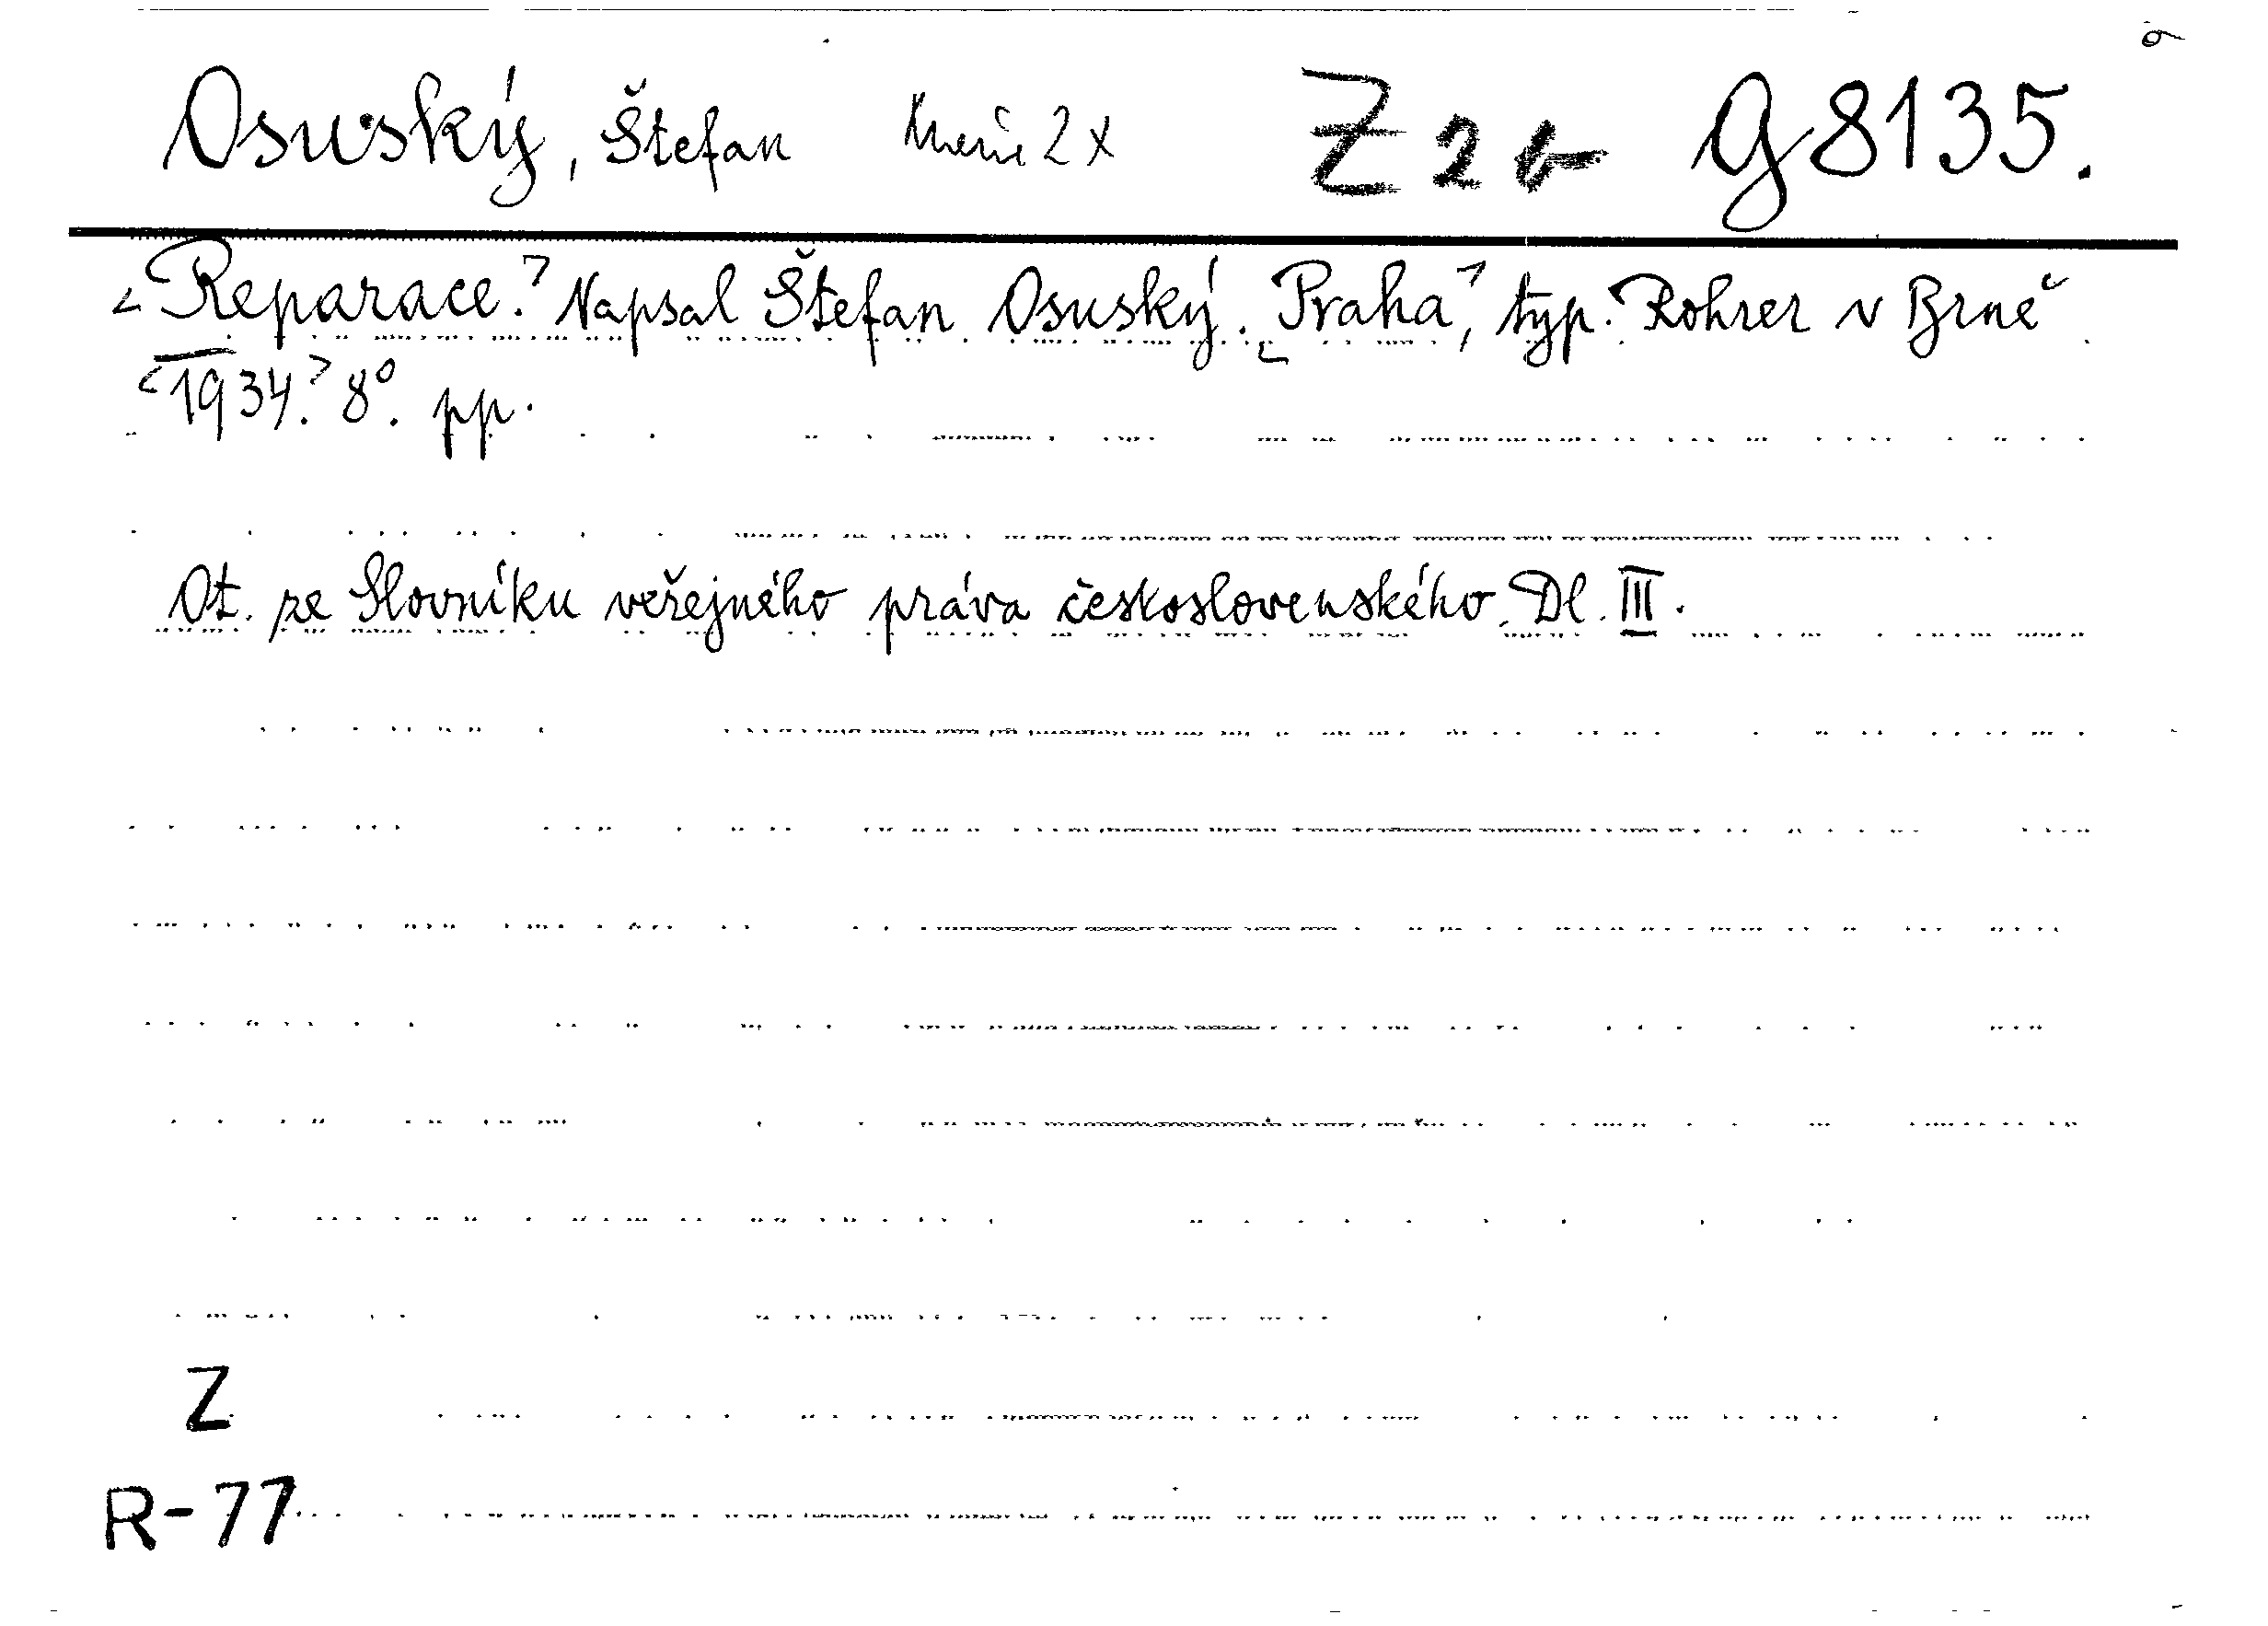 Osuský, Štefan 2x Z 2 g 8135.
<Reparace.> Napsal Štefan Osuský. <Praha>, typ. Rohrer v Brně
<1934.> 8°. pp.
Ot. ze Slovníku veřejného práva československého. Dl. III.
Z
R-77